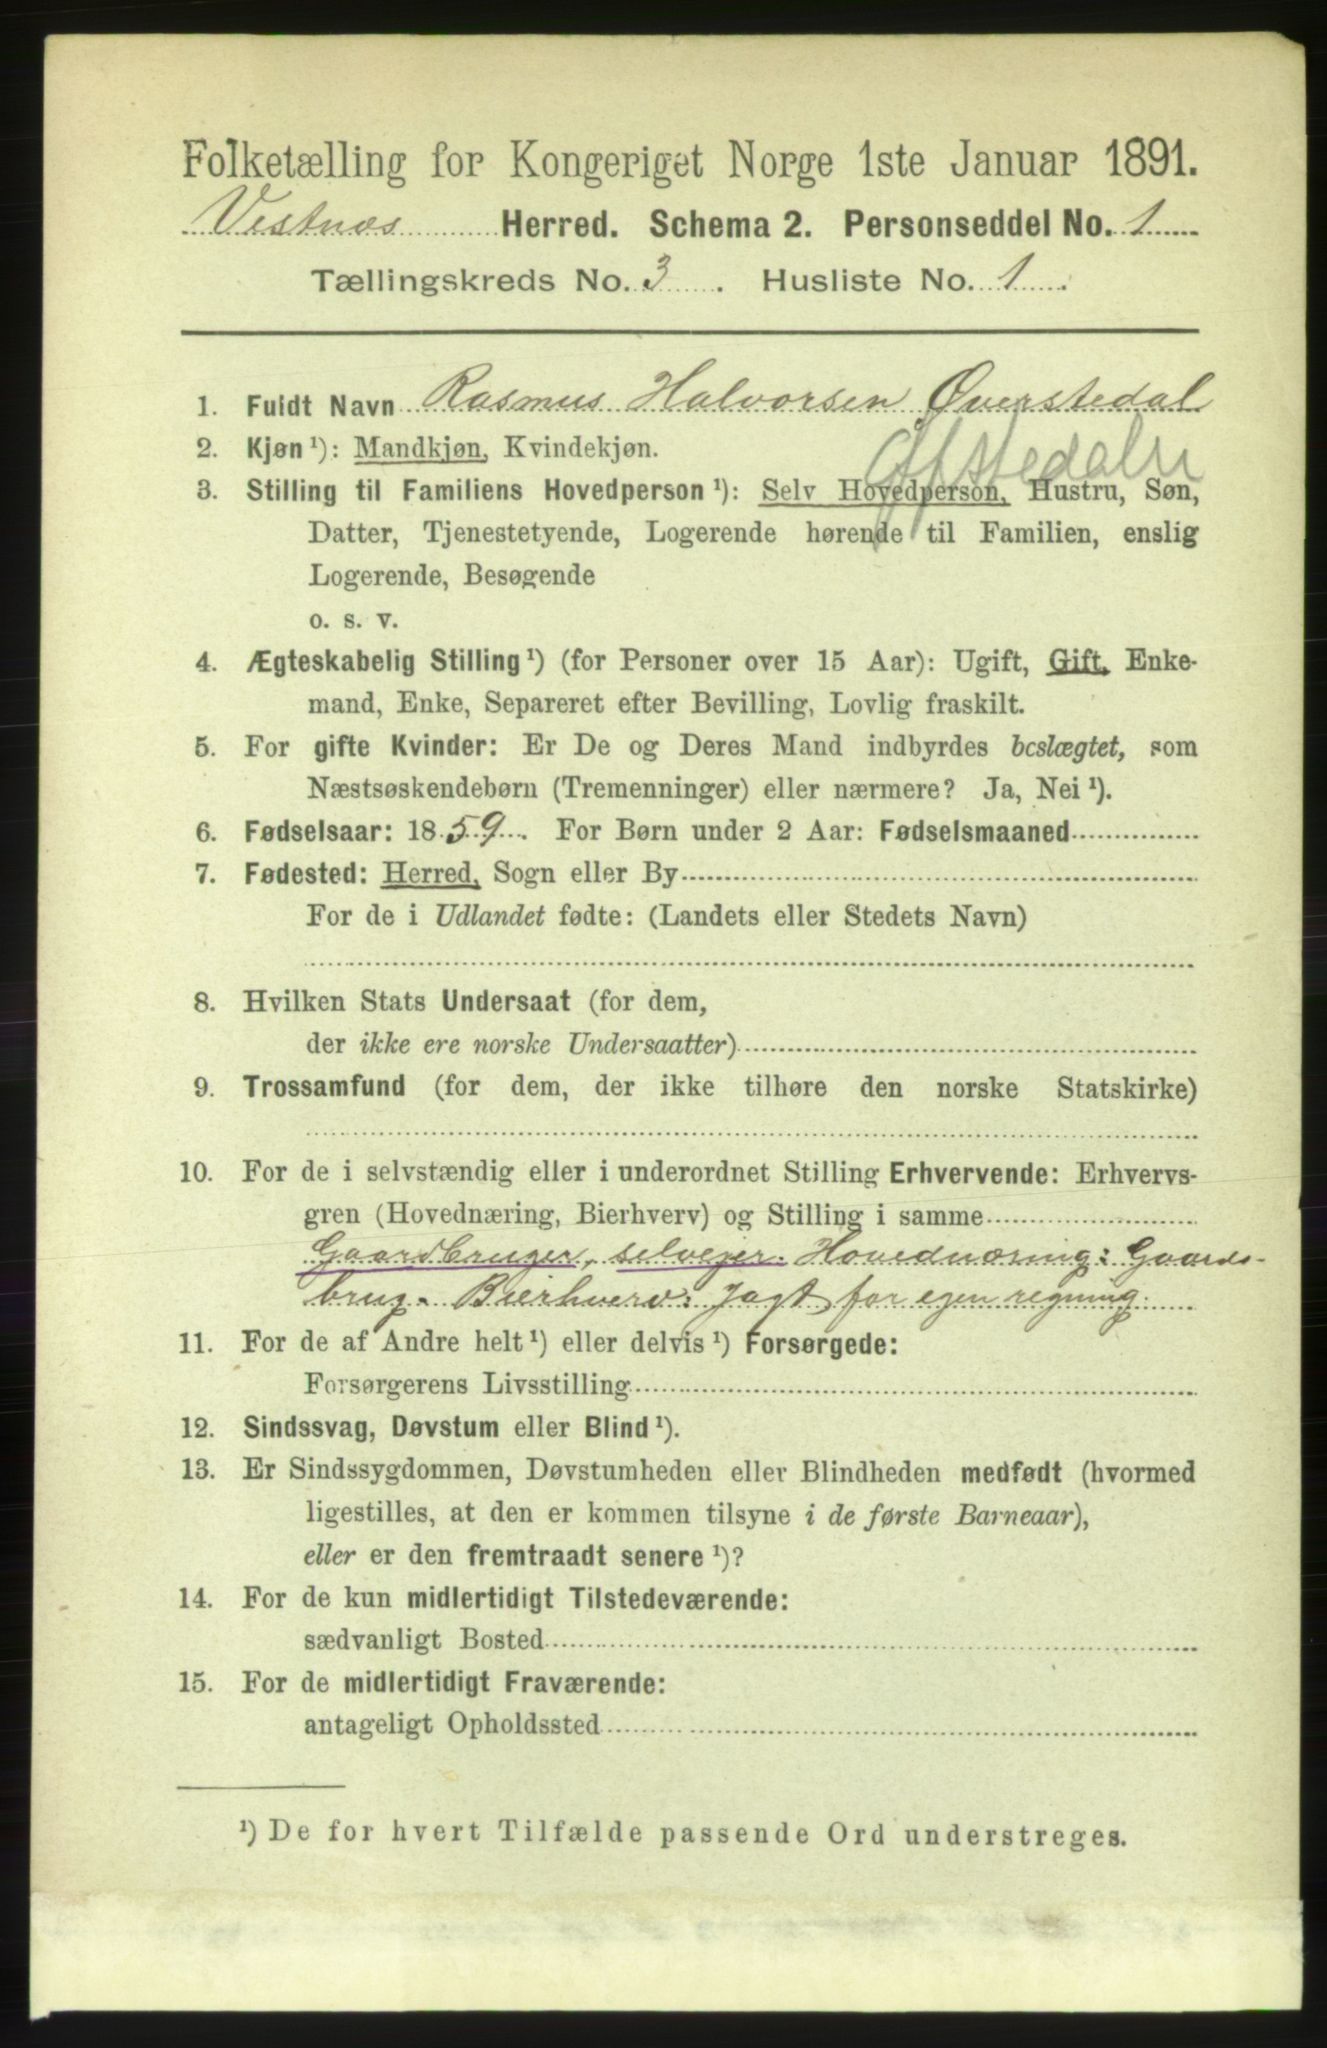 Folketælling for Kongeriget Norge 1ste Januar 1891.
Vestnæs Herred. Schema 2. Personseddel No. 1
Tællingskreds No. 3. Husliste No. 1.
1. Fuldt Navn Rasmus Halvorsen Øverstedal
2. Kjøn¹): Mandkjøn, Kvindekjøn.
3. Stilling til Familiens Hovedperson¹): Selv Hovedperson, Hustru, Søn,
Datter, Tjenestetyende, Logerende hørende til Familien, enslig
Logerende, Besøgende
o. s. v.
4. Ægteskabelig Stilling¹) (for Personer over 15 Aar): Ugift, Gift, Enke-
mand, Enke, Separeret efter Bevilling, Lovlig fraskilt.
5. For gifte Kvinder: Er De og Deres Mand indbyrdes beslægtet, som
Næstsøskendebørn (Tremenninger) eller nærmere? Ja, Nei¹).
6. Fødselsaar: 1859. For Børn under 2 Aar: Fødselsmaaned
7. Fødested: Herred, Sogn eller By
For de i Udlandet fødte: (Landets eller Stedets Navn)
8. Hvilken Stats Undersaat (for dem,
der ikke ere norske Undersaatter)
9. Trossamfund (for dem, der ikke tilhøre den norske Statskirke)
10. For de i selvstændig eller i underordnet Stilling Erhvervende: Erhvervs-
gren (Hovednæring, Bierhverv) og Stilling i samme
Gaardbruger, selveier. Hovednæring: Gaards-
brug. Bierhverv: Jagt for egen regning.
11. For de af Andre helt¹) eller delvis¹) Forsørgede:
Forsørgerens Livsstilling
12. Sindssvag, Døvstum eller Blind¹).
13. Er Sindssygdommen, Døvstumheden eller Blindheden medfødt (hvormed
ligestilles, at den er kommen tilsyne i de første Barneaar),
eller er den fremtraadt senere¹)?
14. For de kun midlertidigt Tilstedeværende:
sædvanligt Bosted
15. For de midlertidigt Fraværende:
antageligt Opholdssted
¹) De for hvert Tilfælde passende Ord understreges.